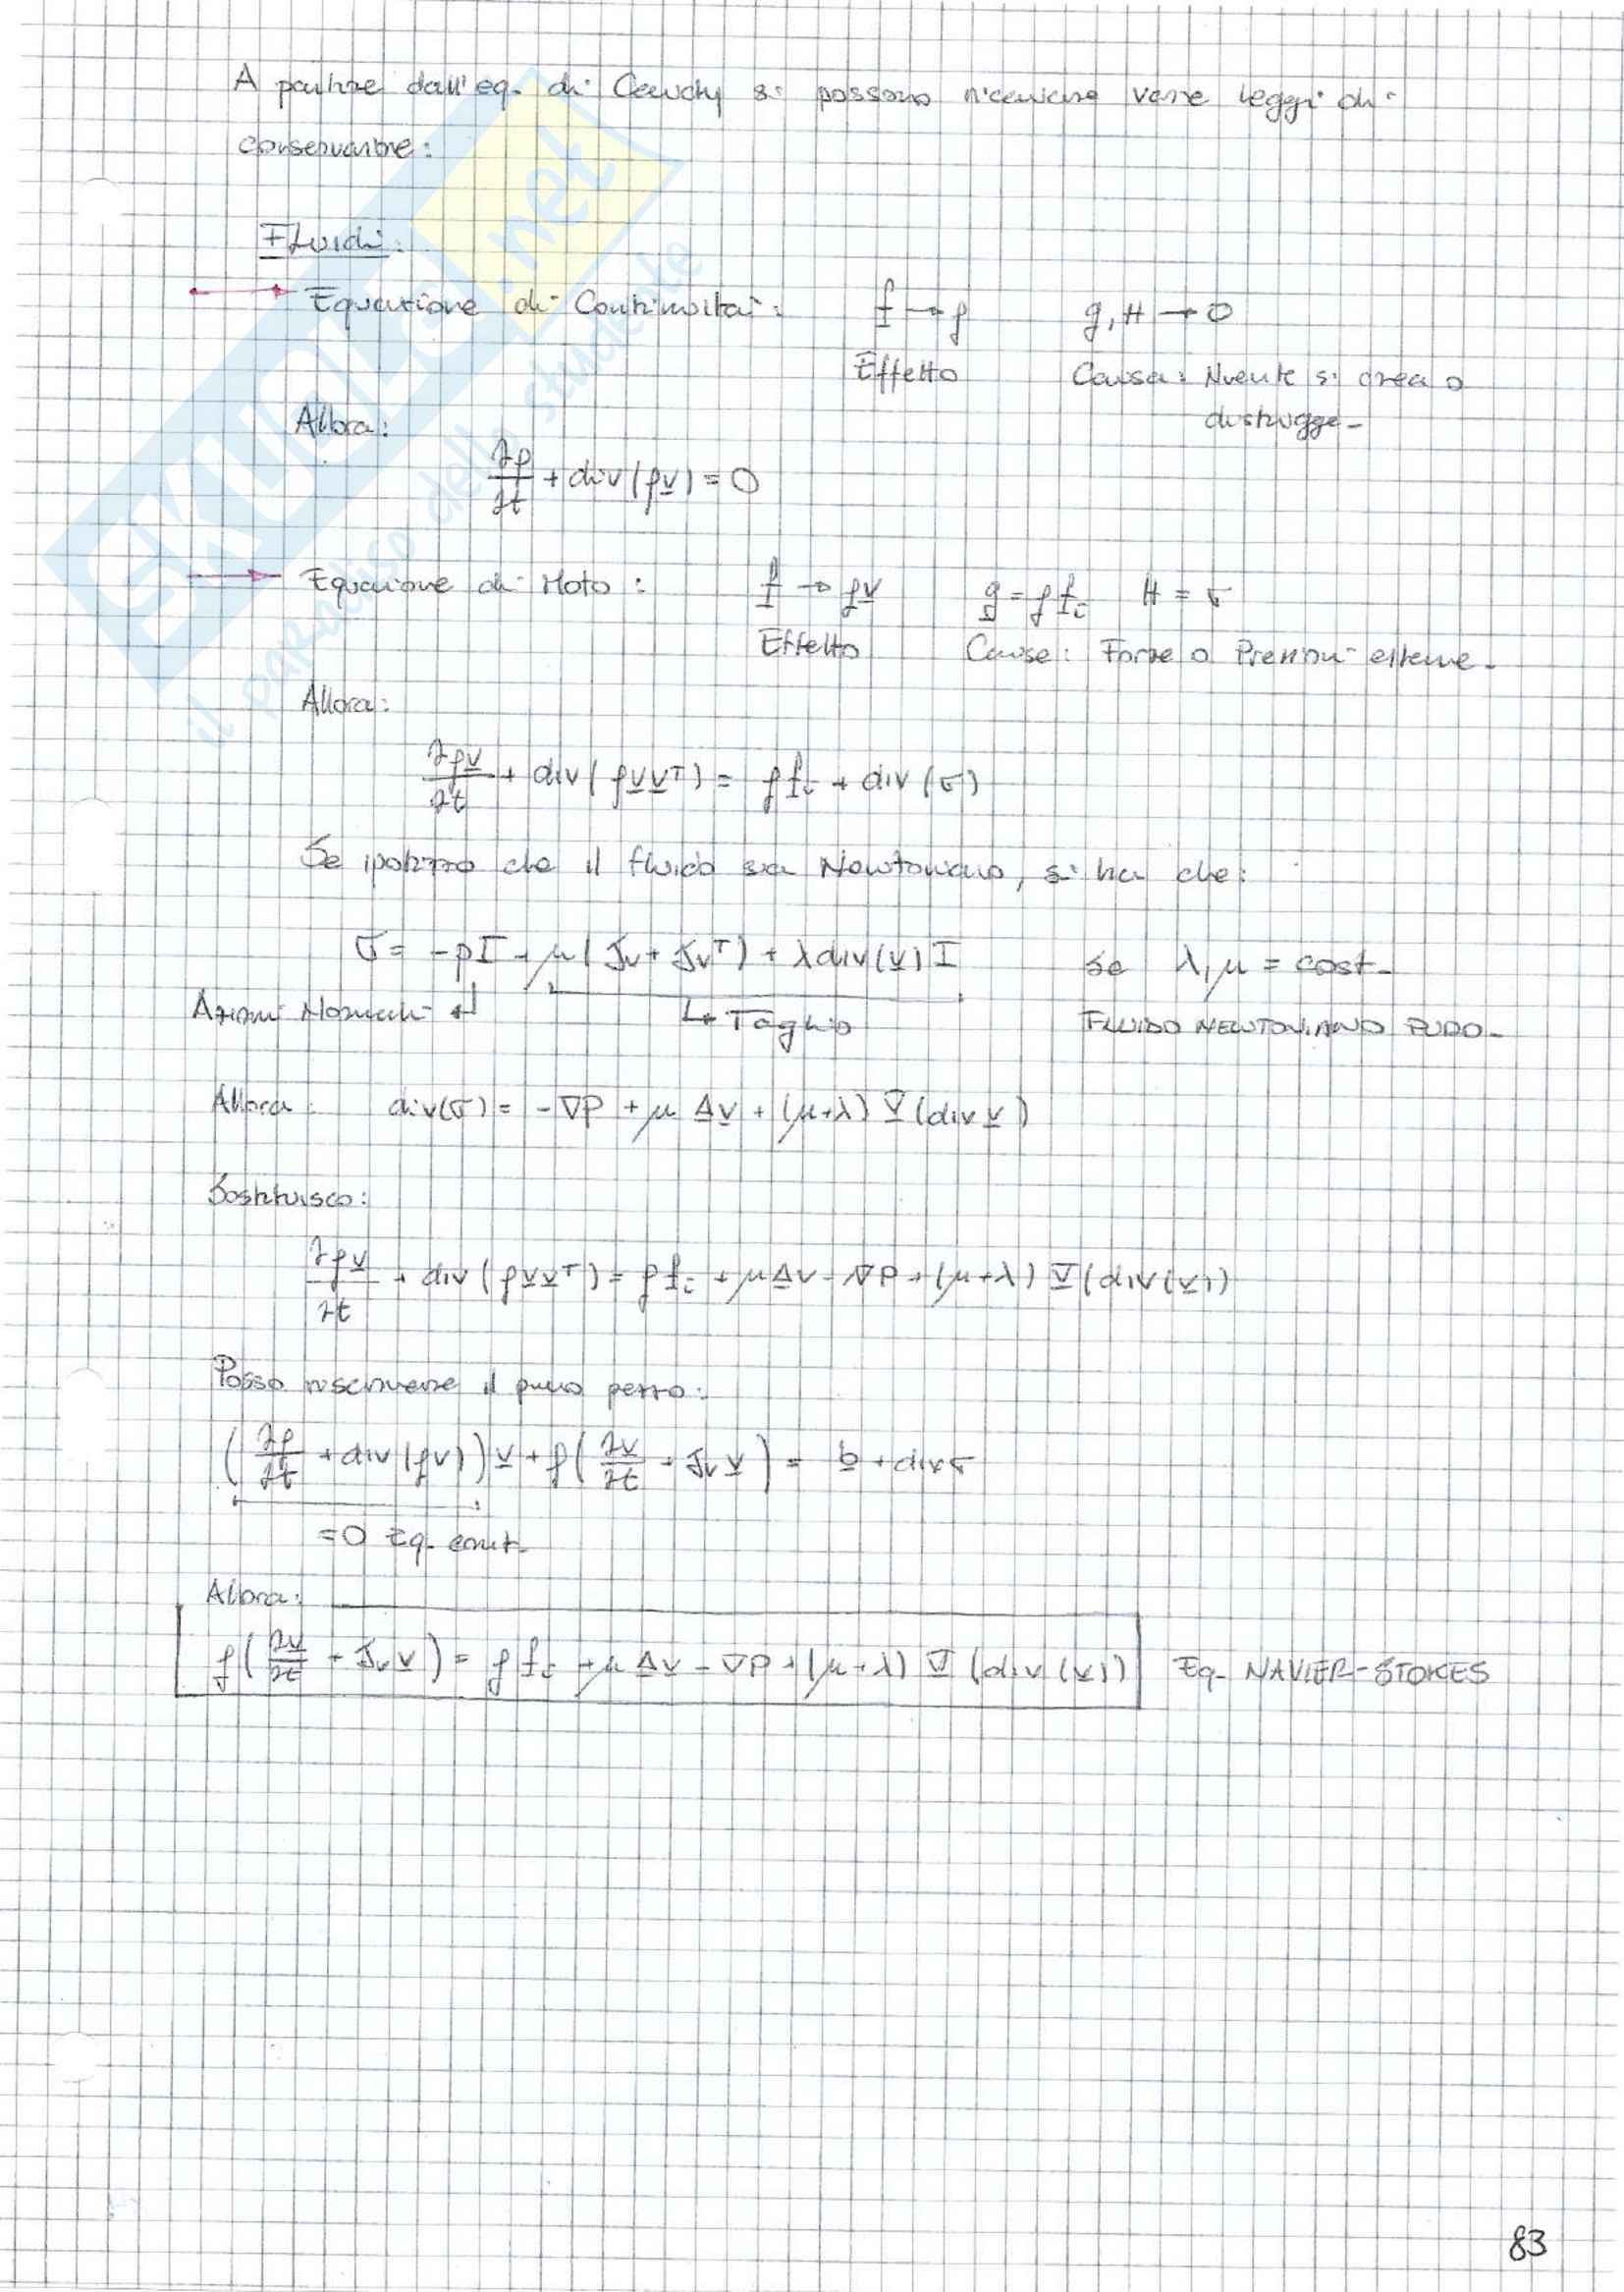 A partire dall'eq. di Cauchy si possono ricavare varie leggi di
conservazione:
Fluidi:
Equazione di Continuità: f → ρ g, H → 0
Effetto Causa: Niente si crea o
distrugge.
Allora:
∂ρ/∂t + div(ρv) = 0
Equazione di Moto: f → ρv g = ρ f_i H = σ
Effetto Cause: Forze o Pressioni esterne.
Allora:
∂ρv/∂t + div(ρ v vᵀ) = ρ f_i + div(σ)
Se ipotizzo che il fluido sia Newtoniano, si ha che:
σ = -pI + μ(Jv + Jvᵀ) + λ div(v) I se λ, μ = cost.
Azioni Normali ↵ ↳ Taglio FLUIDO NEWTONIANO PURO.
Allora: div(σ) = -∇P + μ Δv + (μ+λ) ∇(div v)
Sostituisco:
∂ρv/∂t + div(ρ v vᵀ) = ρ f_i + μΔv - ∇P + (μ+λ) ∇(div(v))
Posso riscrivere il primo pezzo:
(∂ρ/∂t + div(ρv)) v + ρ(∂v/∂t + Jv v) = b + div σ
=0 Eq. cont.
Allora:
ρ(∂v/∂t + Jv v) = ρ f_i + μ Δv - ∇P + (μ+λ) ∇(div(v)) Eq. NAVIER-STOKES
83
SKUOLA.net
il paradiso dello studente